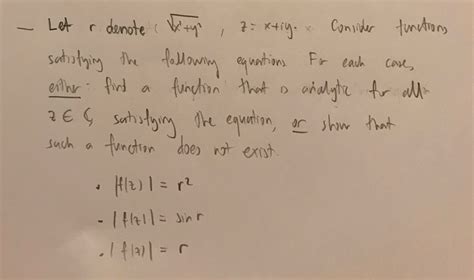 — Let r denote √x²+y² , z = x+iy. Consider functions
satisfying the following equations For each case,
either: find a function that is analytic for all
z ∈ ℂ, satisfying the equation, or show that
such a function does not exist.
• |f(z)| = r²
• |f(z)| = sin r
• |f(z)| = r